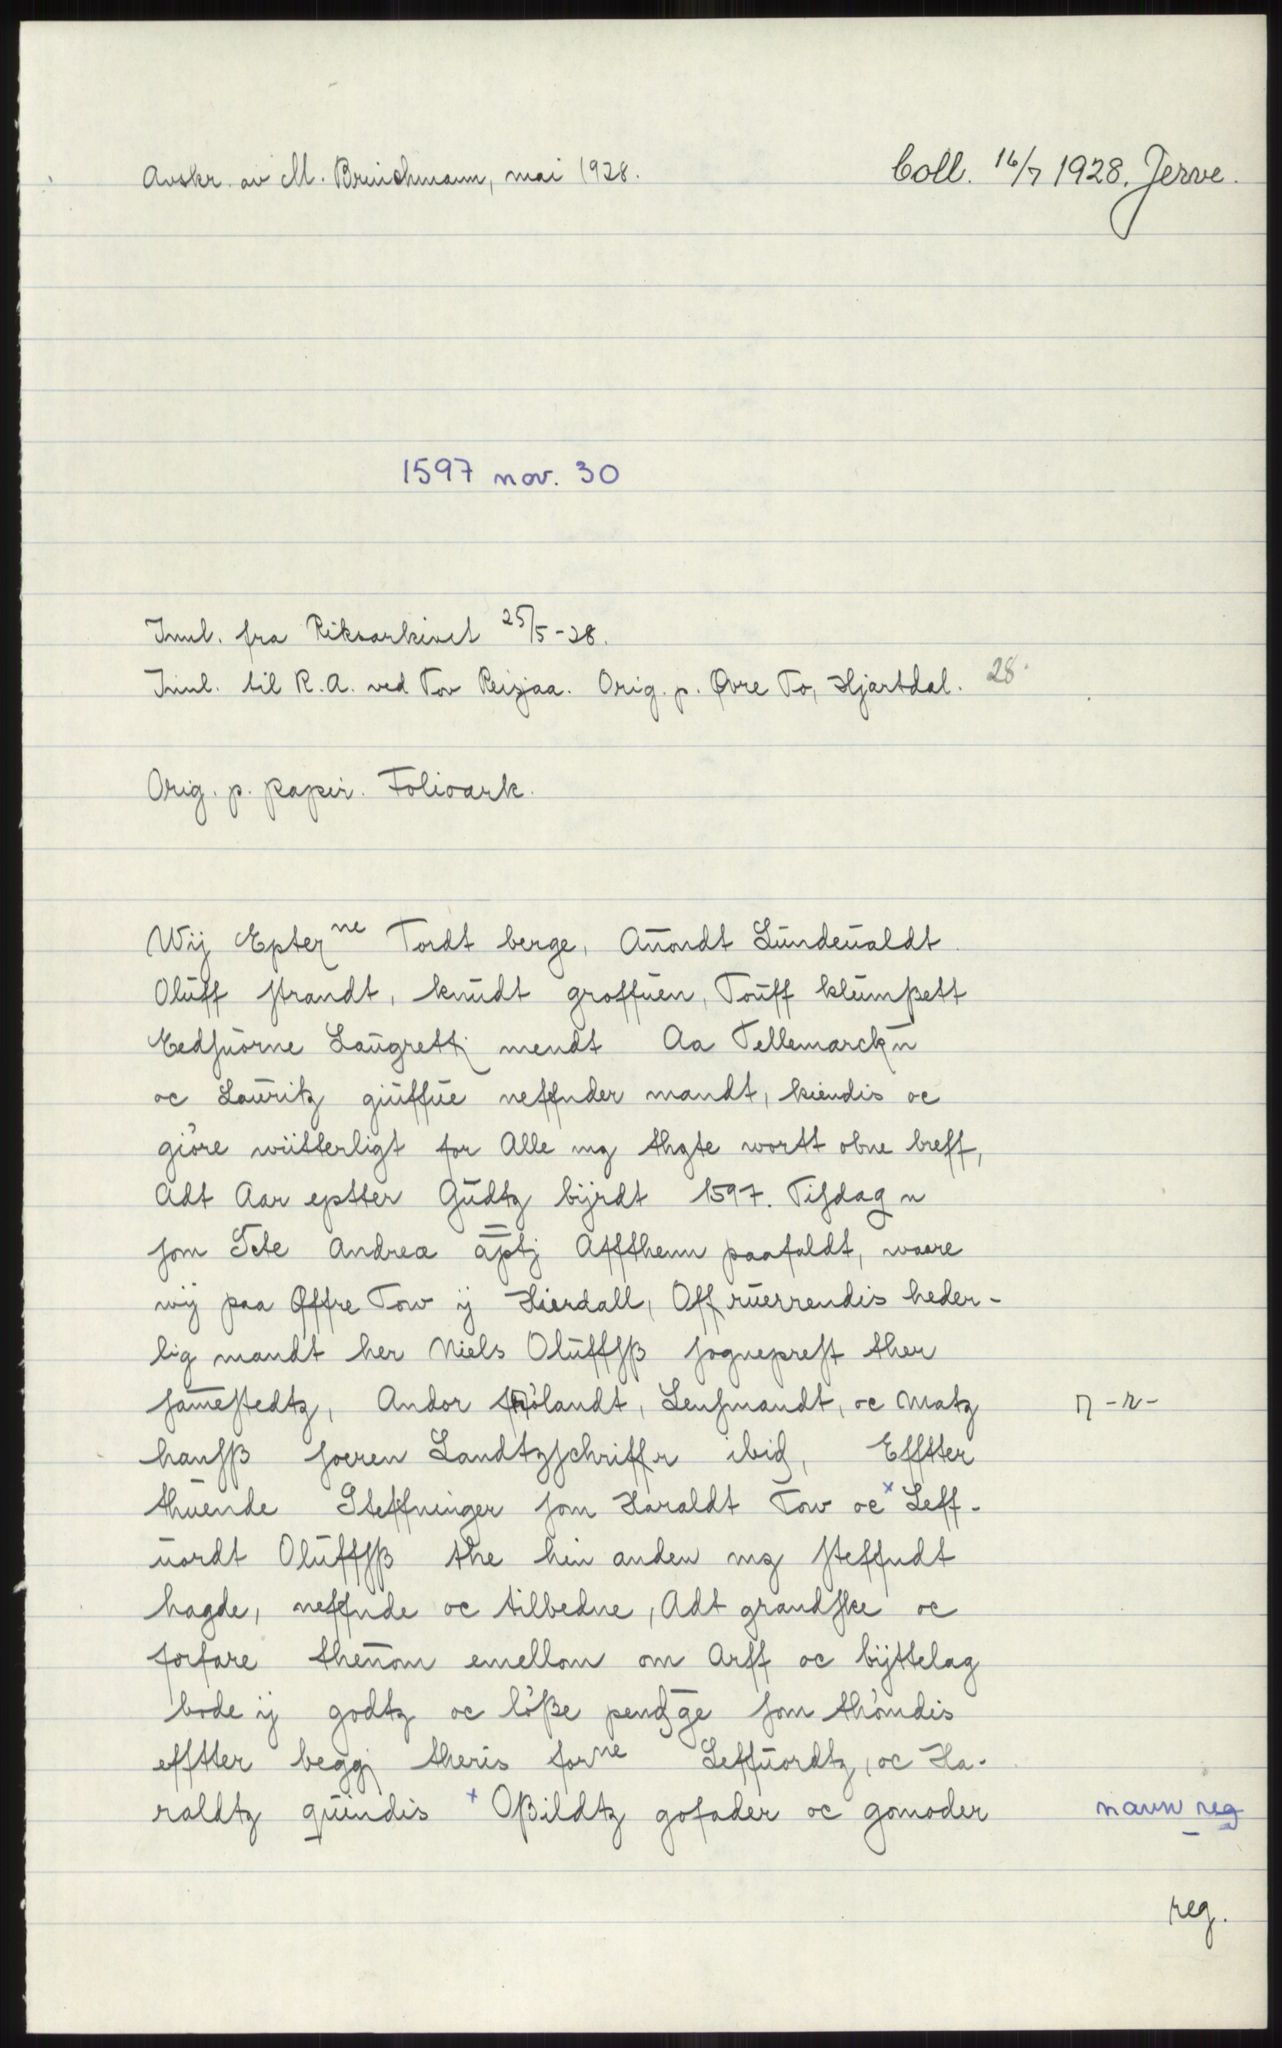 Avskr. av M. Brinchmann, mai 1928.
Coll. 16/7 1928. Jerve.
1597 nov. 30
Innl. fra Riksarkivet 25/5-28.
Innl. til R.A. ved Tov Reisjaa. Orig. p. Øvre To, Hjartdal. 28
Orig. p. papir. Folioark.
Wij Epterne Tordt berge, Auondt Lundeualdt
Oluff strandt, knudt groffuen, Touff klumpett
Eedsuorne Laugrettj mendt Aa Tellemarckn
oc Lauritz giuffue neffnder mandt, kiendis oc
giöre wiitterligt for Alle mz thzte wortt obne breff,
Adt Aar eptter Gudtz bÿrdt 1597. Tisdagn
som Scte Andreæ aptj Affthenn paafaldt, waare
wij paa Øffre Tow ij Hierdall, Offruerrendis heder-
lig mandt her Niels Oluffsß sogneprest ther
samestedtz, Andor sölandt, Lensmandt, oc Matz
hansß soeren Landtzschriffr ibid, Efftter
thuende Steffninger som Haraldt Tow oc x Leff-
uordt Oluffsß the hin anden mz steffndt
hagde, neffnde oc tilbedne, Adt grandske oc
forfare thenom emellom om Arff oc bÿttelag
bode ij godtz oc löße pendge som thömdis
efftter beggj theris forne Leffuordtz, oc Ha-
raldtz quindis x Oßildtz gofader oc gomoder
n-r-
navn reg
reg.